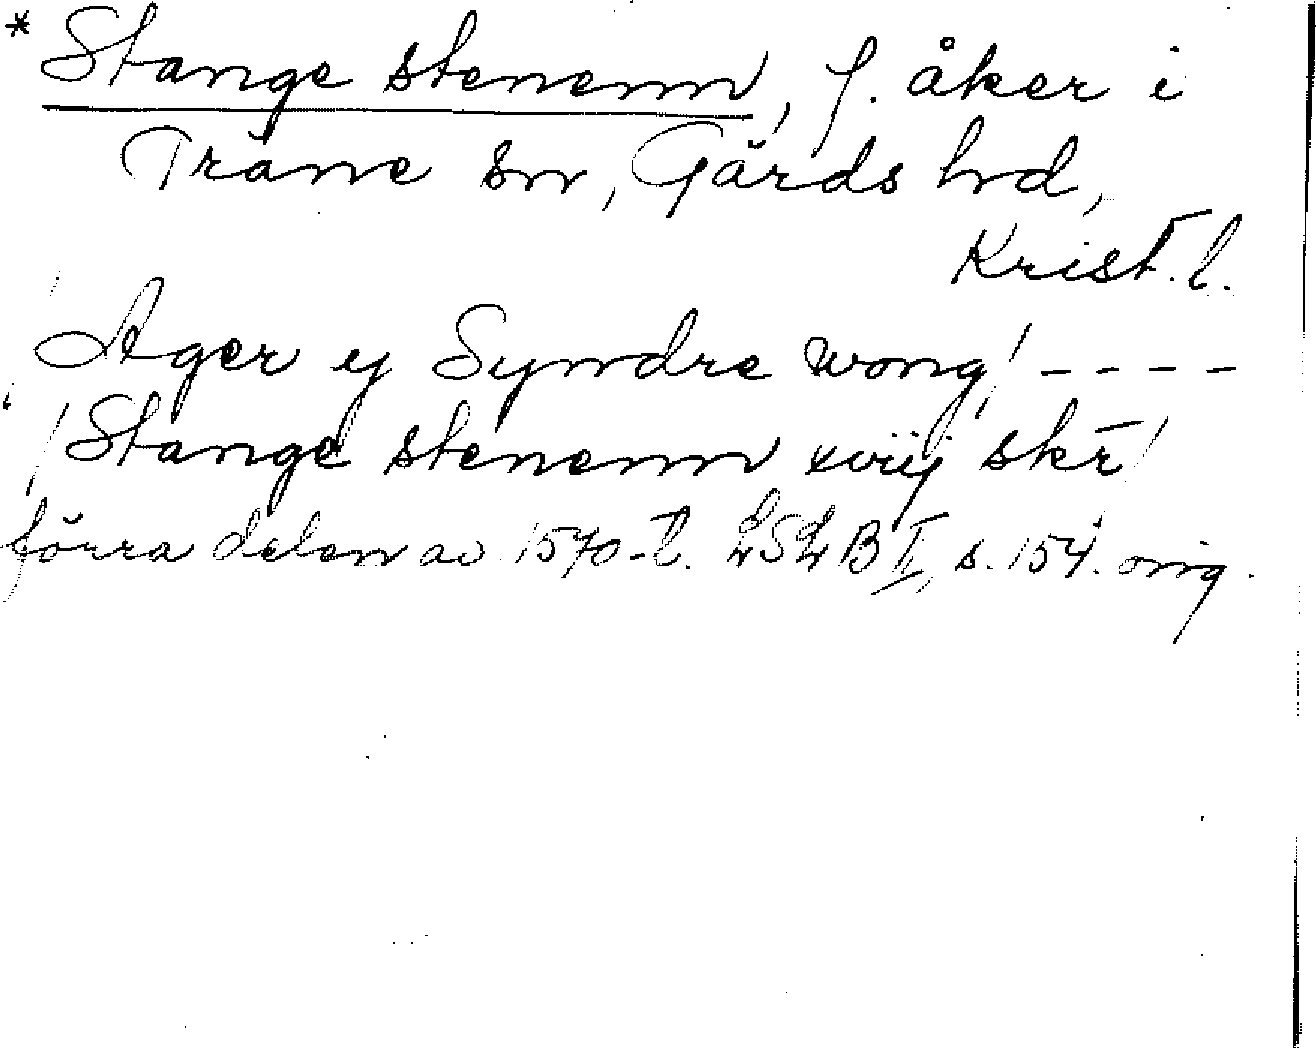 * Stange stenenn, f. åker i
Träne sn, Gärds hd,
Krist. l.
Ager y Syndre wong / - - - -
/ Stange stenenn xviij skr /
förra delen av 1570-t. LSLB II, s. 154. orig.